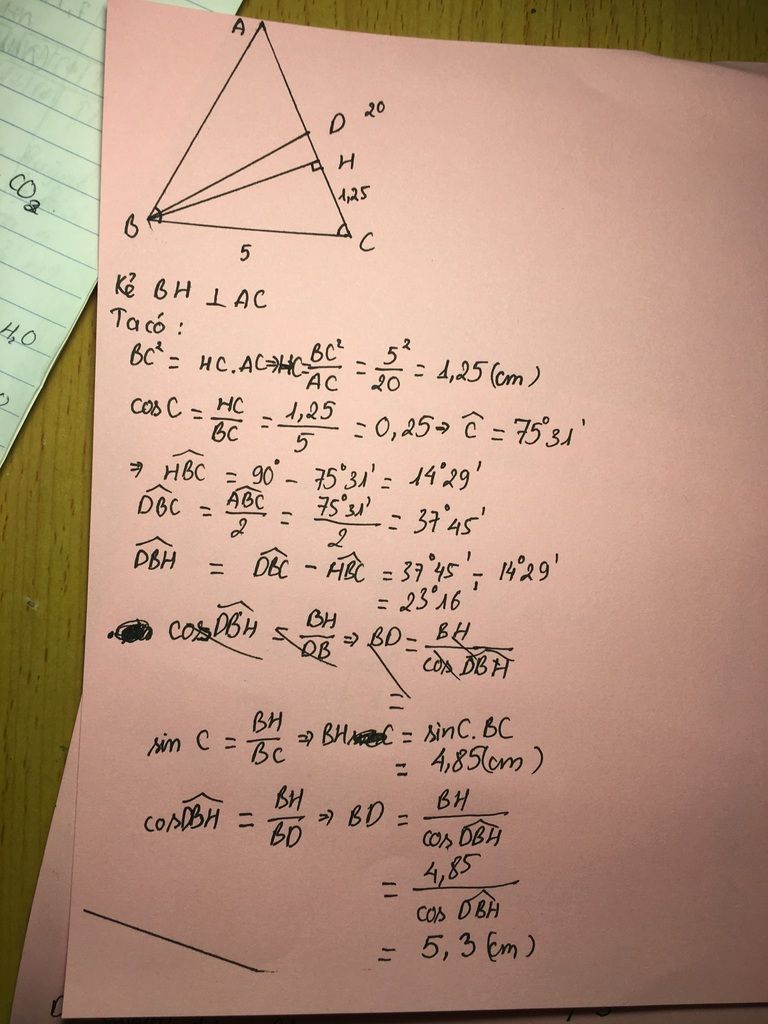 CO₂
H₂O
A
D 20
H
1,25
B
C
5
Kẻ BH ⊥ AC
Ta có :
BC² = HC.AC ⇒ HC = BC²/AC = 5²/20 = 1,25 (cm)
cos C = HC/BC = 1,25/5 = 0,25 ⇒ Ĉ = 75°31'
⇒ HBC = 90° - 75°31' = 14°29'
DBC = ABC/2 = 75°31'/2 = 37°45'
DBH = DBC - HBC = 37°45' - 14°29'
= 23°16'
cosDBH = BH/DB ⇒ BD = BH/cos DBH
=
sin C = BH/BC ⇒ BH = sinC.BC
= 4,85(cm)
cosDBH = BH/BD ⇒ BD = BH/cos DBH
= 4,85/cos DBH
= 5,3 (cm)